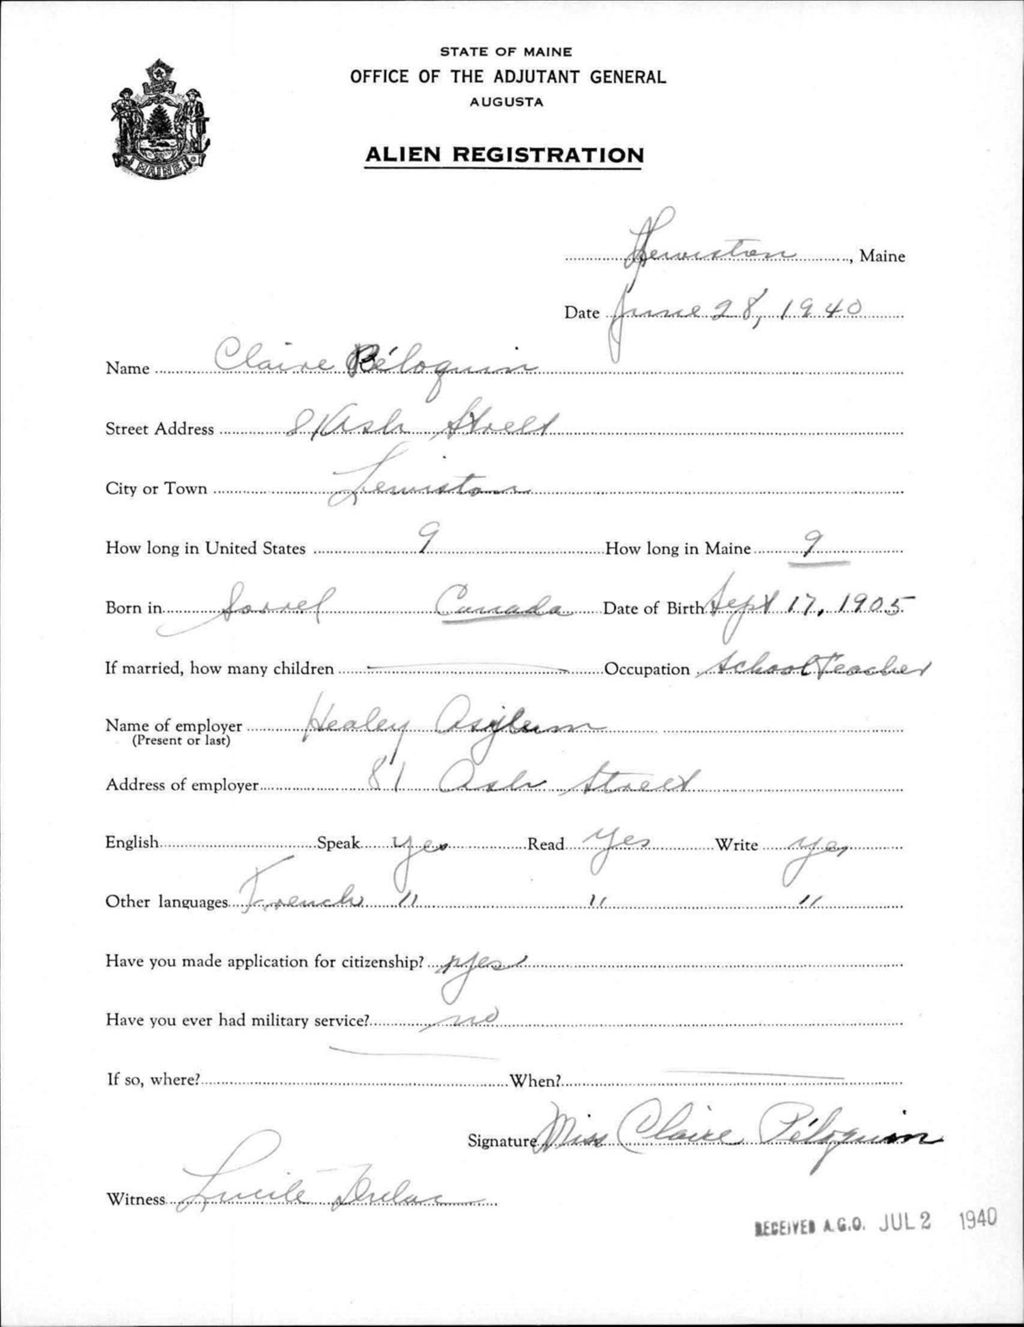 STATE OF MAINE
OFFICE OF THE ADJUTANT GENERAL
AUGUSTA
ALIEN REGISTRATION
MAINE
Lewiston, Maine
Date June 28, 1940
Name Claire Péloquin
Street Address 81 Ash Street
City or Town Lewiston
How long in United States 9 How long in Maine 9
Born in Sorrel Canada Date of Birth Sept 17, 1905
If married, how many children — Occupation School Teacher
Name of employer Healey Asylum
(Present or last)
Address of employer 81 Ash Street
English Speak yes Read yes Write yes
Other languages French " " "
Have you made application for citizenship? yes
Have you ever had military service? no
If so, where? — When? —
Signature Miss Claire Péloquin
Witness Lucile Dulac
RECEIVED A.G.O. JUL 2 1940